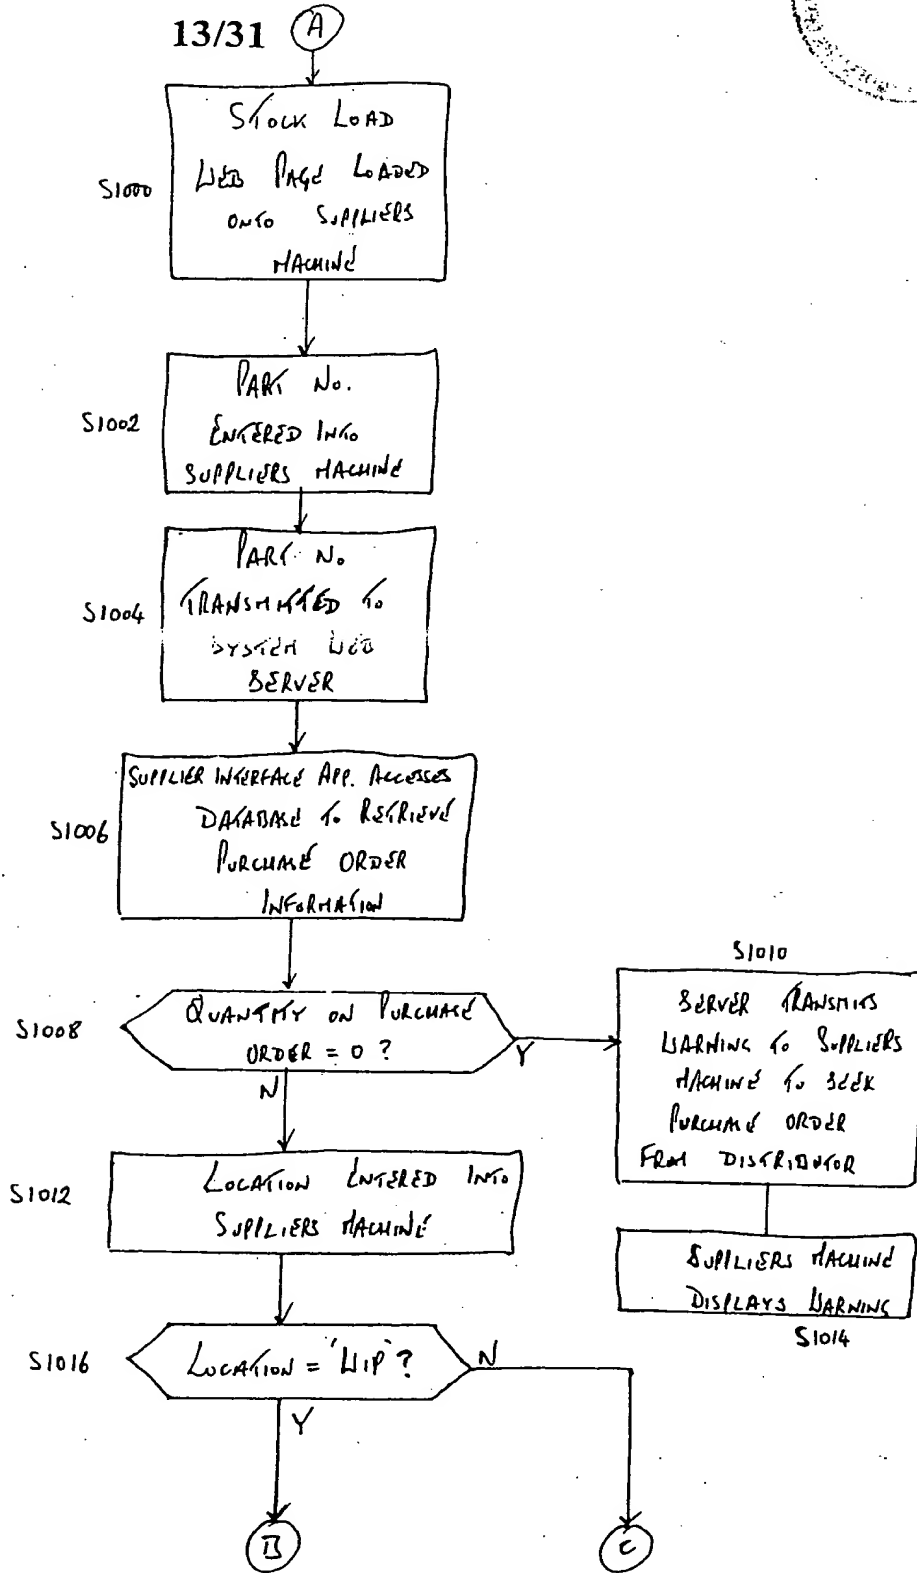 13/31 A
STOCK LOAD
WEB PAGE LOADED
ONTO SUPPLIERS
MACHINE
S1000
PART NO.
ENTERED INTO
SUPPLIERS MACHINE
S1002
PART NO
TRANSMITTED TO
SYSTEM WEB
SERVER
S1004
SUPPLIER INTERFACE APP. ACCESSES
DATABASE TO RETRIEVE
PURCHASE ORDER
INFORMATION
S1006
QUANTITY ON PURCHASE
ORDER = 0 ?
S1008
Y
N
S1010
SERVER TRANSMITS
WARNING TO SUPPLIERS
MACHINE TO SEEK
PURCHASE ORDER
FROM DISTRIBUTOR
LOCATION ENTERED INTO
SUPPLIERS MACHINE
S1012
SUPPLIERS MACHINE
DISPLAYS WARNING
S1014
LOCATION = 'WIP' ?
S1016
N
Y
B
C